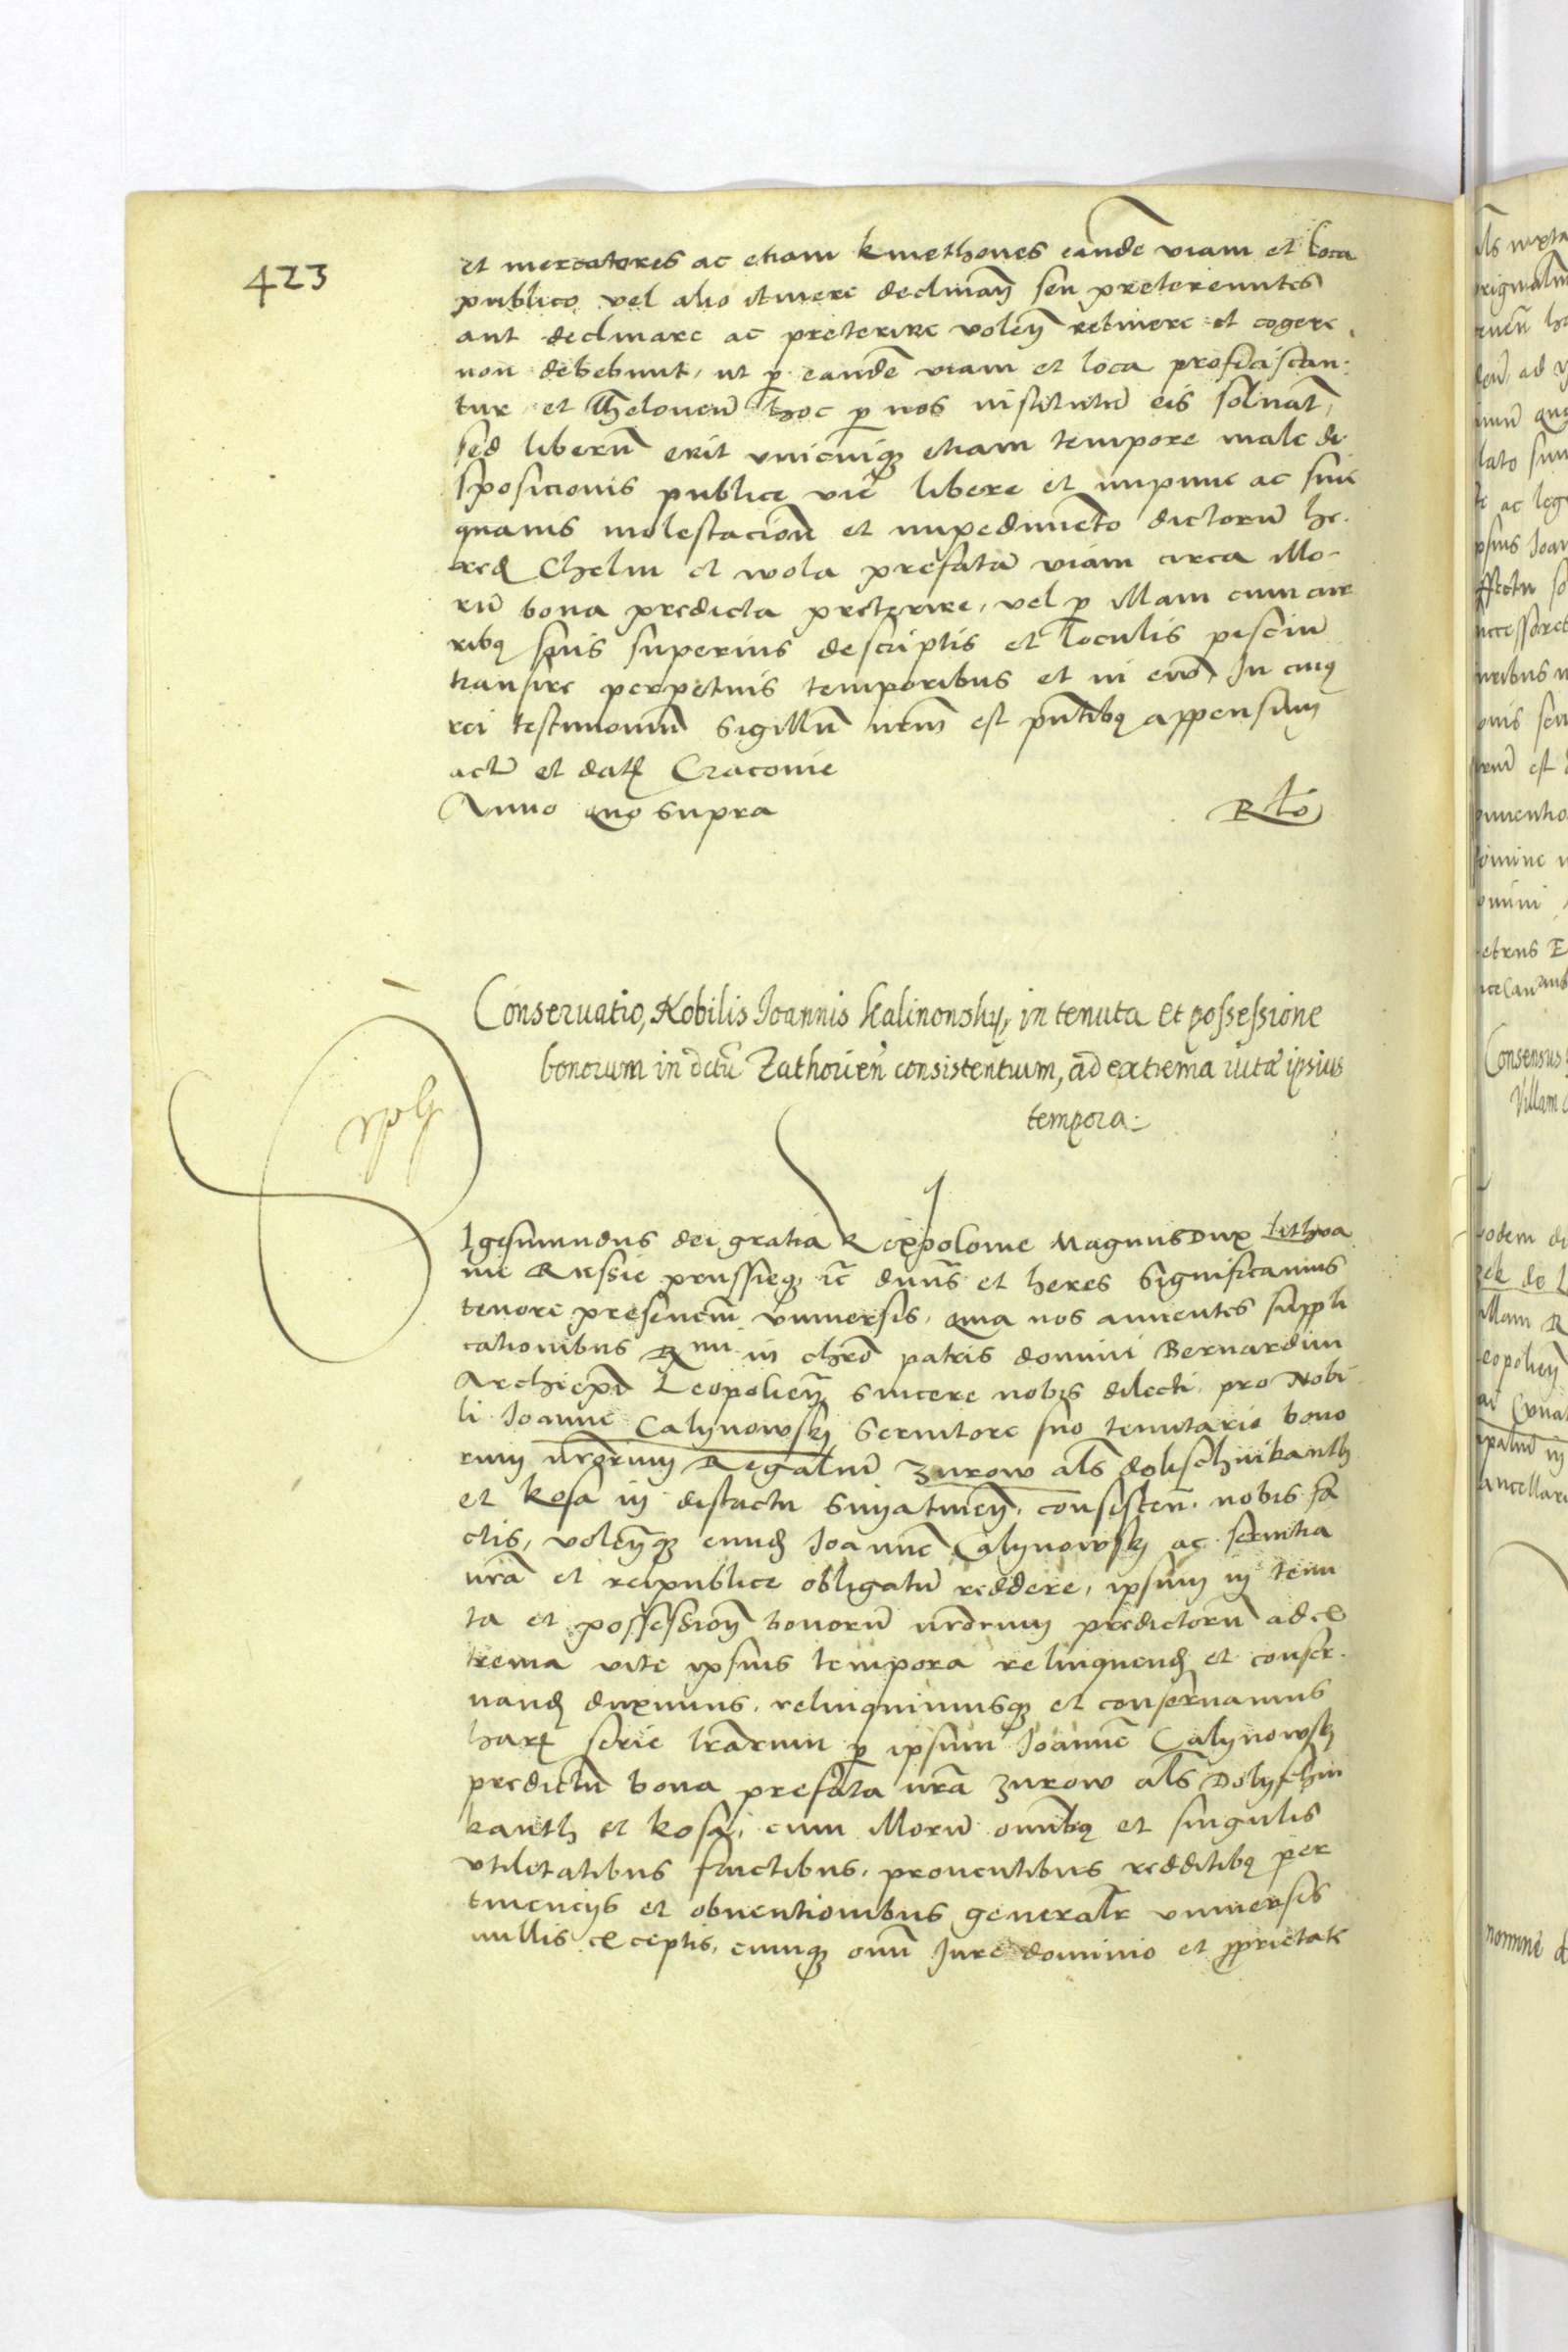 423
et mercatores ac etiam kmethones eandē viam et loca
publico vel alio itinere declinan̄ seu pretereuntes
aut declinare ac preterire volen̄ retinere et cogere
non debebunt, ut p̱ eandē viam et loca proficiscan-
tur et Theloneū hoc p̱ nos institutū eis soluāt,
sed liberū erit unicuiqȝ etiam tempore male di
sposicionis publice vie libere et impune ac sine
quauis molestacion̄ et impedimēto dictorū he-
red̄ Chelm et wola prefatā viam circa illo-
rū bona predicta preterire, vel p̱ illam cum cur
ribȝ suis superius descriptis et loculis pisciū
transire perpetuis temporibus et in euū, In cuiȝ
rei testimoniū Sigillū nrm̄ est pn̄tibȝ appensum
actū et dat̄ Cracouie
Anno quo supra
Rlto
Conseruatio, Nobilis Joannis Kalinonsky, in tenuta et possessione
bonorum in dctū Zathorien̄ consistentium, ad extrema vitæ ipsius
tempora.
Igesmundus dei gratia Rex polonie Magnus Dux Lithva
nie Russie prussieqȝ ec̄ dnūs et heres Significamus
tenore presencm̄ vniuersis, quia nos annuentes suppli
cationibus Rmi in chrō patris domini Bernardini
Archiep̄i Leopolien̄ sincere nobis dilecti pro Nobi
li Joanne Calynowskj Seruitore suo tenutario bono
rum nr̄orum Regaliū Zurow al̄s dolischnikanth
et kosa in districtu Sniatinen̄ consisten̄ nobis fa
ctis, volen̄qȝ eund̄ Joannē Calynowskj ac seruitia
nrā et reipublice obligatū reddere, ipsum in tenu
ta et possession̄ bonorū nr̄orum predictorū ad ex
trema vite ipsius tempora relinquend̄ et conser-
uand̄ duximus, relinquimusqȝ et conseruamus
har̄ serie lrārum p̱ ipsum Joannē Calynowskj
predictū bona prefata nrā Zurow al̄s Dolyschni
kanth et kosa, cum illorū omībȝ et singulis
vtilitatibus fructibus, prouentibus redditibȝ per
tinencijs et obuentionibus generalr̄ vniuersis
nullis exceptis, cumqȝ omī Jure dominio et p̱prietate